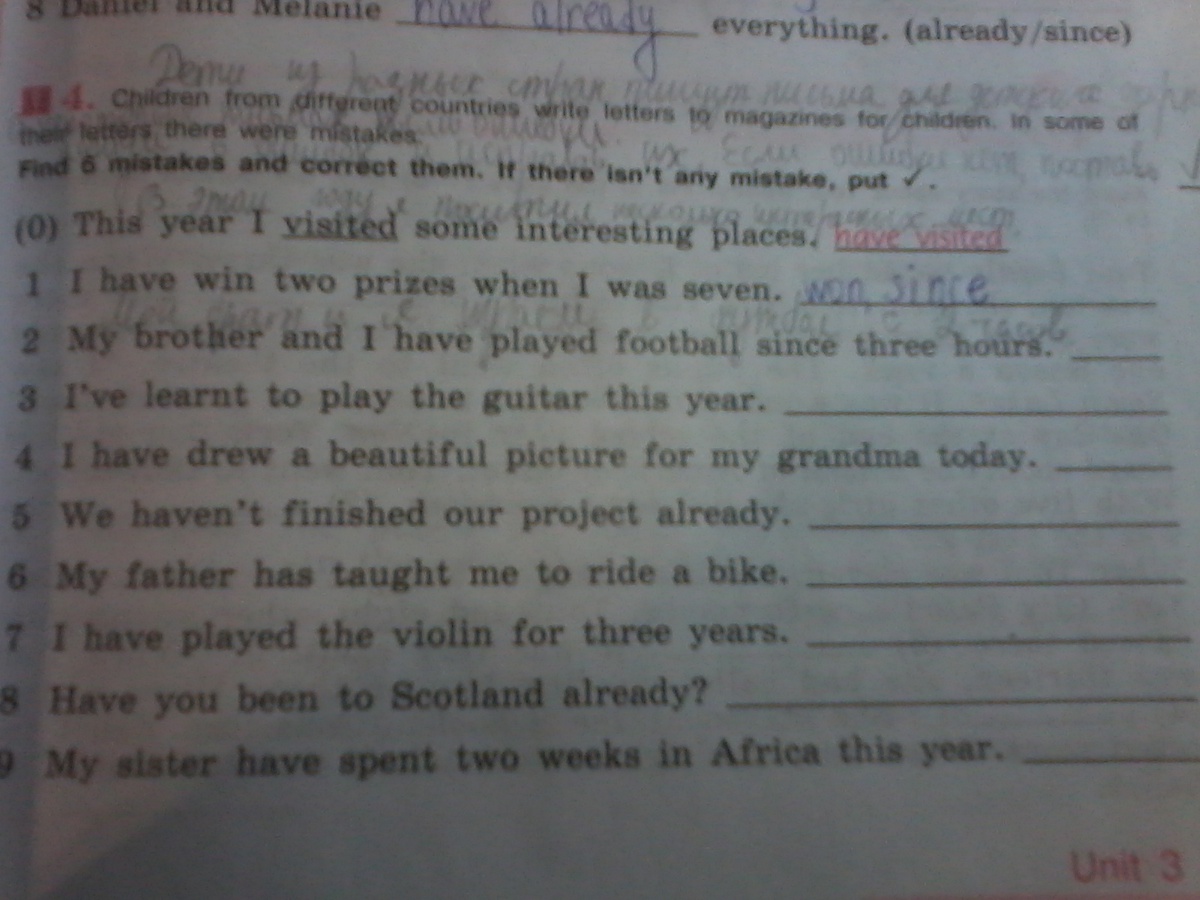 8 Daniel and Melanie have already everything. (already/since)
Дети из разных стран пишут письма для
4. Children from different countries write letters to magazines for children. In some of
their letters there were mistakes.
их Если
Find 6 mistakes and correct them. If there isn't any mistake, put ✓.
В этом году я
(0) This year I visited some interesting places. have visited
1 I have win two prizes when I was seven. won since
2 My brother and I have played football since three hours.
3 I've learnt to play the guitar this year.
4 I have drew a beautiful picture for my grandma today.
5 We haven't finished our project already.
6 My father has taught me to ride a bike.
7 I have played the violin for three years.
8 Have you been to Scotland already?
9 My sister have spent two weeks in Africa this year.
Unit 3